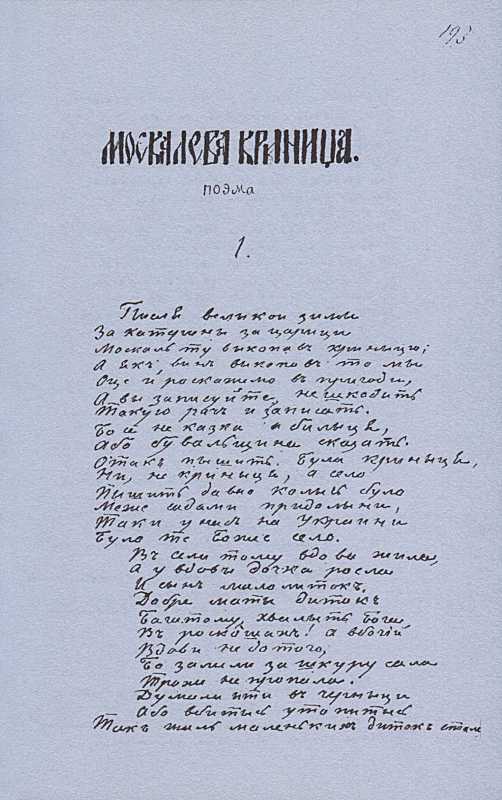 193
МОСКАЛЕВА КРИНИЦА.
поэма
1.
Писля великои зимы
За катерины за царици
Москаль ту выкопавъ криныцю;
А якъ, винъ выкопавъ то мы
Оце и роскажемо въ пригоди,
А вы записуйте, не шкодить
Такую рѣчъ и записать.
Бо се не казка а былыця,
Або бувальщина сказать.
Отакъ пышить. Була криныця,
Ни, не криныця, а село
Пышить давно колысь було
Меже садами при долыни,
Таки у насъ на Украини
Було те Боже село.
Въ сели тому вдова жила,
А у вдовы дочка росла
И сынъ малолитокъ.
Добре маты диток
Багатому, хвалыть Бога,
Въ роскошахъ! а вбогій
Вдови не до того,
Бо залили за шкуру сала
Трохи не пропала.
Думала ити въ черныци
Або вбитись утопитыс
Такъ жаль маленькихъ дитокъ стало